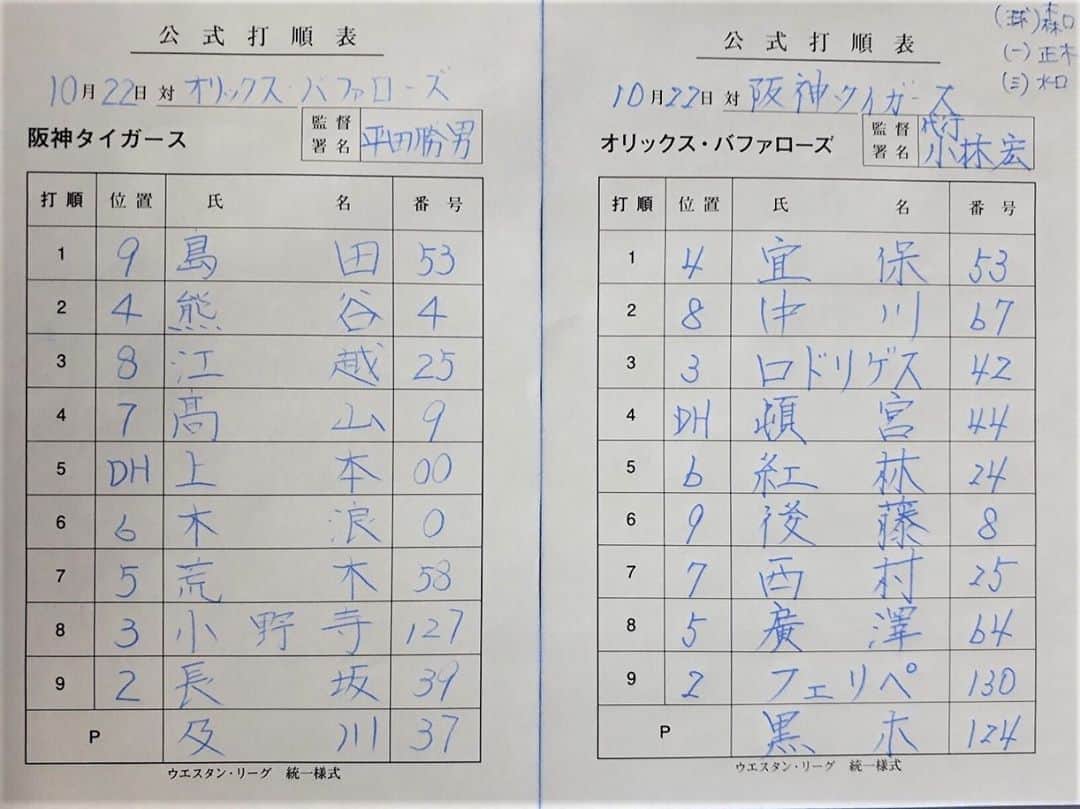 公式打順表
10月22日 対 オリックス・バファローズ
阪神タイガース
監督署名 平田勝男
打順 位置 氏名 番号
1 9 島田 53
2 4 熊谷 4
3 8 江越 25
4 7 髙山 9
5 DH 上本 00
6 6 木浪 0
7 5 荒木 58
8 3 小野寺 127
9 2 長坂 39
P 及川 37
ウエスタン・リーグ 統一様式
(球)森口
(一)正木
(三)水口
公式打順表
10月22日 対 阪神タイガース
オリックス・バファローズ
監督署名 代行 小林宏
打順 位置 氏名 番号
1 4 宜保 53
2 8 中川 67
3 3 ロドリゲス 42
4 DH 頓宮 44
5 6 紅林 24
6 9 後藤 8
7 7 西村 25
8 5 廣澤 64
9 2 フェリペ 130
P 黒木 124
ウエスタン・リーグ 統一様式